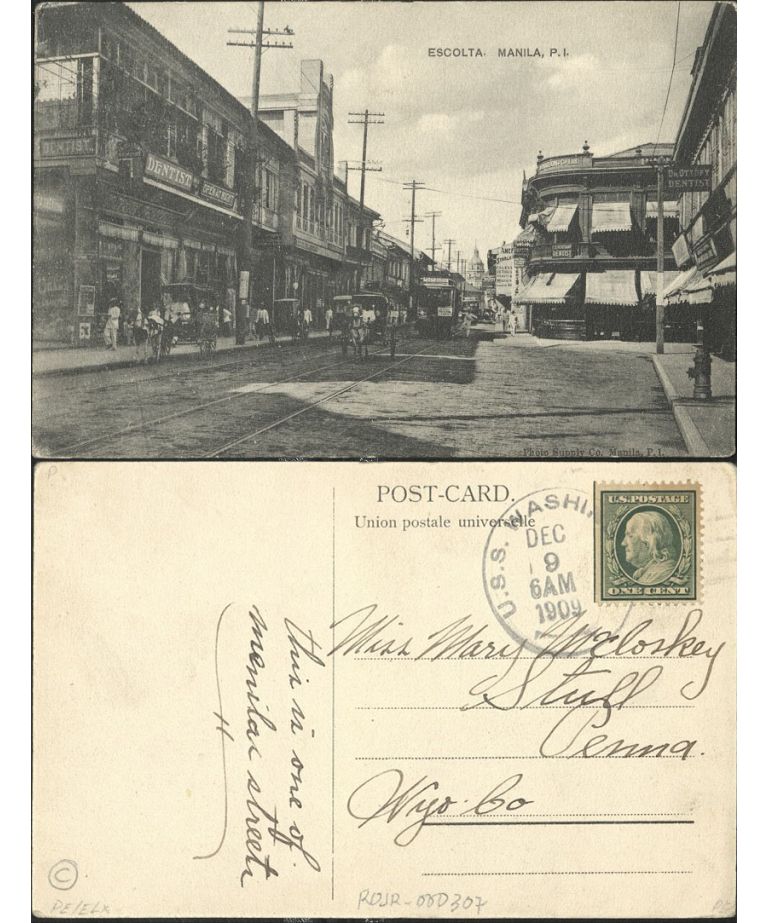 ESCOLTA. MANILA, P.I.
DENTIST
DENTIST
DR. OTTOFY
DENTIST
DENTIST
Photo Supply Co. Manila, P. I.
POST-CARD.
Union postale universelle
U.S.S. WASHIN
DEC
9
6AM
1909
U.S. POSTAGE
ONE CENT
this is one of
menilar streets
H
Miss Mary McCloskey
Stull
Penna.
Wyo. Co
C
DE/ELX
RDJR-000307
P